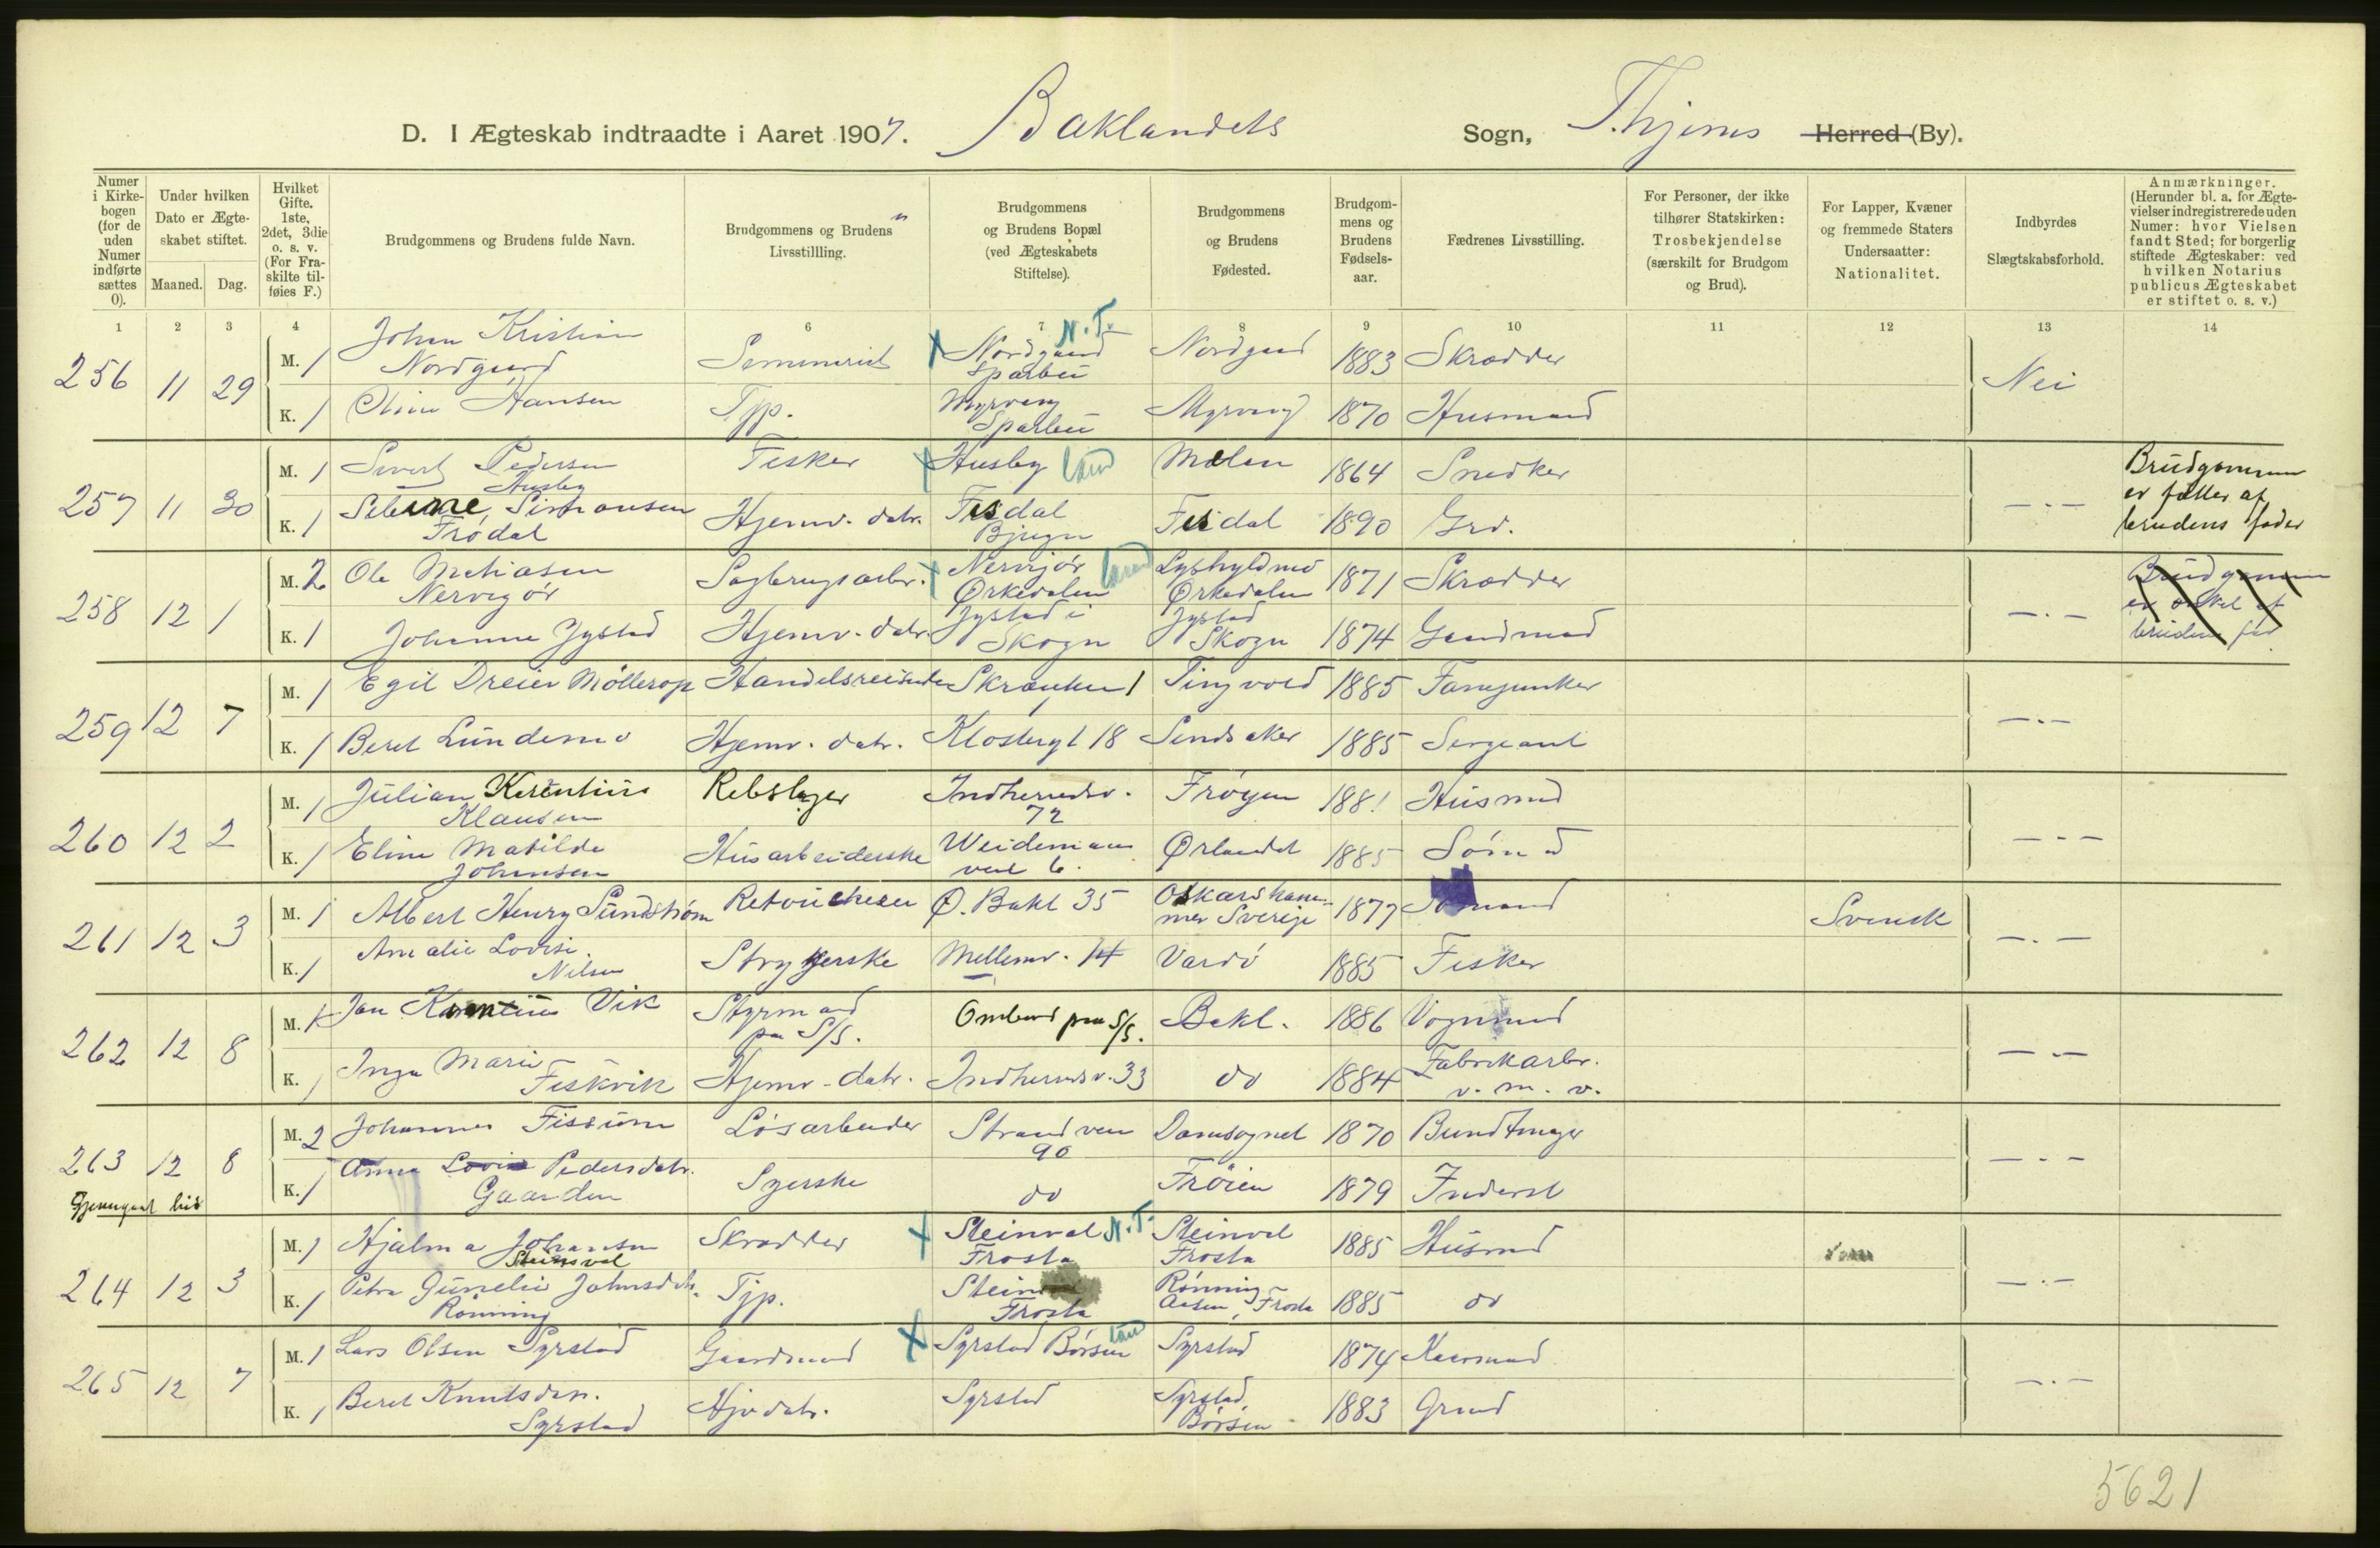 D. I Ægteskab indtraadte i Aaret 1907. Baklandets Sogn, Thjems Herred (By).
Numer i Kirkebogen (for de uden Numer indførte sættes 0).
Under hvilken Dato er Ægteskabet stiftet.
Maaned. Dag.
Hvilket Gifte. 1ste, 2det, 3die o. s. v. (For Fraskilte tilføies F.)
Brudgommens og Brudens fulde Navn.
Brudgommens og Brudens Livsstillling.
Brudgommens og Brudens Bopæl (ved Ægteskabets Stiftelse).
Brudgommens og Brudens Fødested.
Brudgommens og Brudens Fødselsaar.
Fædrenes Livsstilling.
For Personer, der ikke tilhører Statskirken: Trosbekjendelse (særskilt for Brudgom og Brud).
For Lapper, Kvæner og fremmede Staters Undersaatter: Nationalitet.
Indbyrdes Slægtskabsforhold.
Anmærkninger. (Herunder bl. a. for Ægtevielser indregistrerede uden Numer: hvor Vielsen fandt Sted; for borgerlig stiftede Ægteskaber: ved hvilken Notarius publicus Ægteskabet er stiftet o. s. v.)
1 2 3 4 6 7 8 9 10 11 12 13 14
256 11 29 M. 1 Johan Kristian Nordgaard Seminarist Nordgaard Sparbu N.T. Nordgaard 1883 Skrædder Nei
K. 1 Oline Hansen Tjp. Myrvang Sparbu Myrvang 1870 Husmand
257 11 30 M. 1 Sivert Pedersen Husby Fisker Husby land Melan 1864 Snedker —"— Brudgommen er fætter af brudens fader
K. 1 Simonsen Frødal Hjemv. datr. Bjugn 1890 Grd.
258 12 1 M. 2 Ole Mathiasen Nervigør Sagbrugsarbr. Orkedalen land Orkedalen 1871 Skrædder —"— Brudgommen er onkel af brudens far
K. 1 Johanne Jystad Hjemv. datr. Jystad i Skogn Jystad Skogn 1874 Gaardmand
259 12 7 M. 1 Egil Dreier Møllerop Handelsreisende 1 Tingvold 1885 Fanejunker —"—
K. 1 Beret Lundemo Hjemv. datr. Klostergt 18 1885 Sergeant
260 12 2 M. 1 Julian Klausen Rebslager Indherredsv. 72 Frøyen 1881 Husmd —"—
K. 1 Eline Matilde Johansen Husarbeiderske Weidemans vei 6. Ørlandet 1885 Sømd
261 12 3 M. 1 Albert Henry Sundstrøm Retoucheur Ø. Bakl 35 Oskarshammer Sverije 1877 Sømand Svensk —"—
K. 1 Amalie Lovise Nilsen Strygerske Mellemv. 14 Vardø 1885 Fisker
262 12 8 M. 1 Jan Vik Styrmand paa S/S. Ombord paa S/S. Bakl. 1886 Vognmand —"—
K. 1 Inga Marie Fiskvik Hjemv. datr. Indherredsv. 33 do 1884 Fabrikarbr. v. m. v.
263 12 8 M. 2 Johannes Fissum Løsarbeider Strandveien 90 Domsognet 1870 Bundtmager —"—
Gjennegaat hid
K. 1 Anna Lovise Pedersdatr. Gaarden Syerske do Frøien 1879 Inderst
264 12 3 M. 1 Hjalmar Johansen Steinvol Skrædder Steinvol Frosta N.T. Steinvol Frosta 1885 Husmd —"—
K. 1 Petra Gunelie Johnsdatr. Rønning Tjp. Frosta Rønning Aasen, Frosta 1885 do
265 12 7 M. 1 Lars Olsen Syrstad Gaardmand Syrstad Børsen land Syrstad 1874 —"—
K. 1 Beret Knutsdtr. Syrstad Hjv datr. Syrstad Syrstad Børsen 1883 Grmd
5621